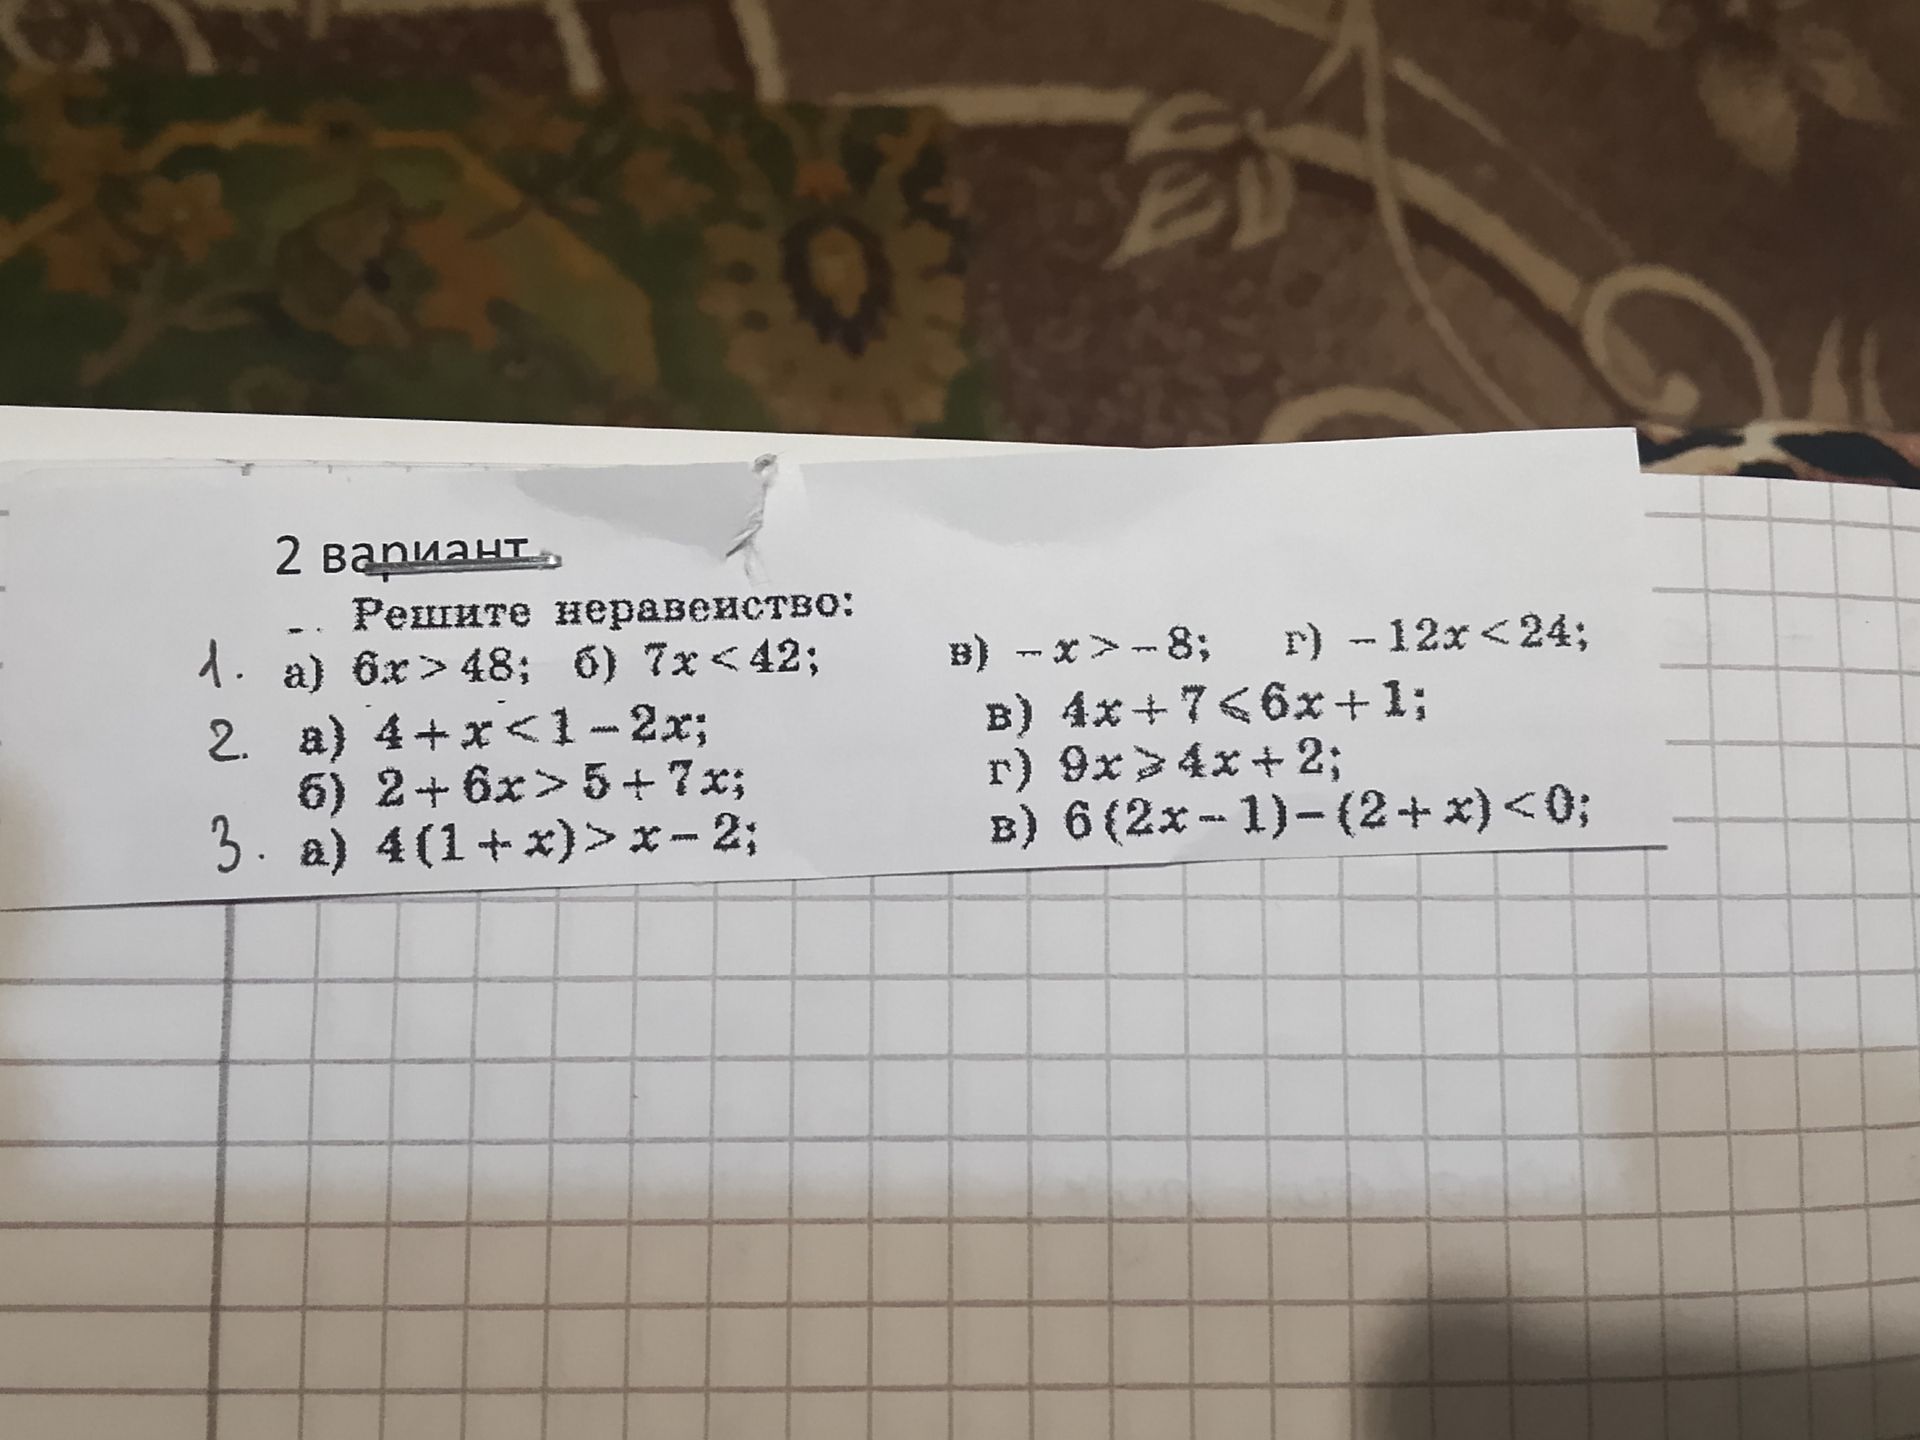 2 вариант
Решите неравенство:
1. а) 6x > 48; б) 7x < 42; в) -x > -8; г) -12x < 24;
2. а) 4 + x < 1 - 2x; в) 4x + 7 ⩽ 6x + 1;
б) 2 + 6x > 5 + 7x; г) 9x ⩾ 4x + 2;
3. а) 4(1 + x) > x - 2; в) 6(2x - 1) - (2 + x) < 0;